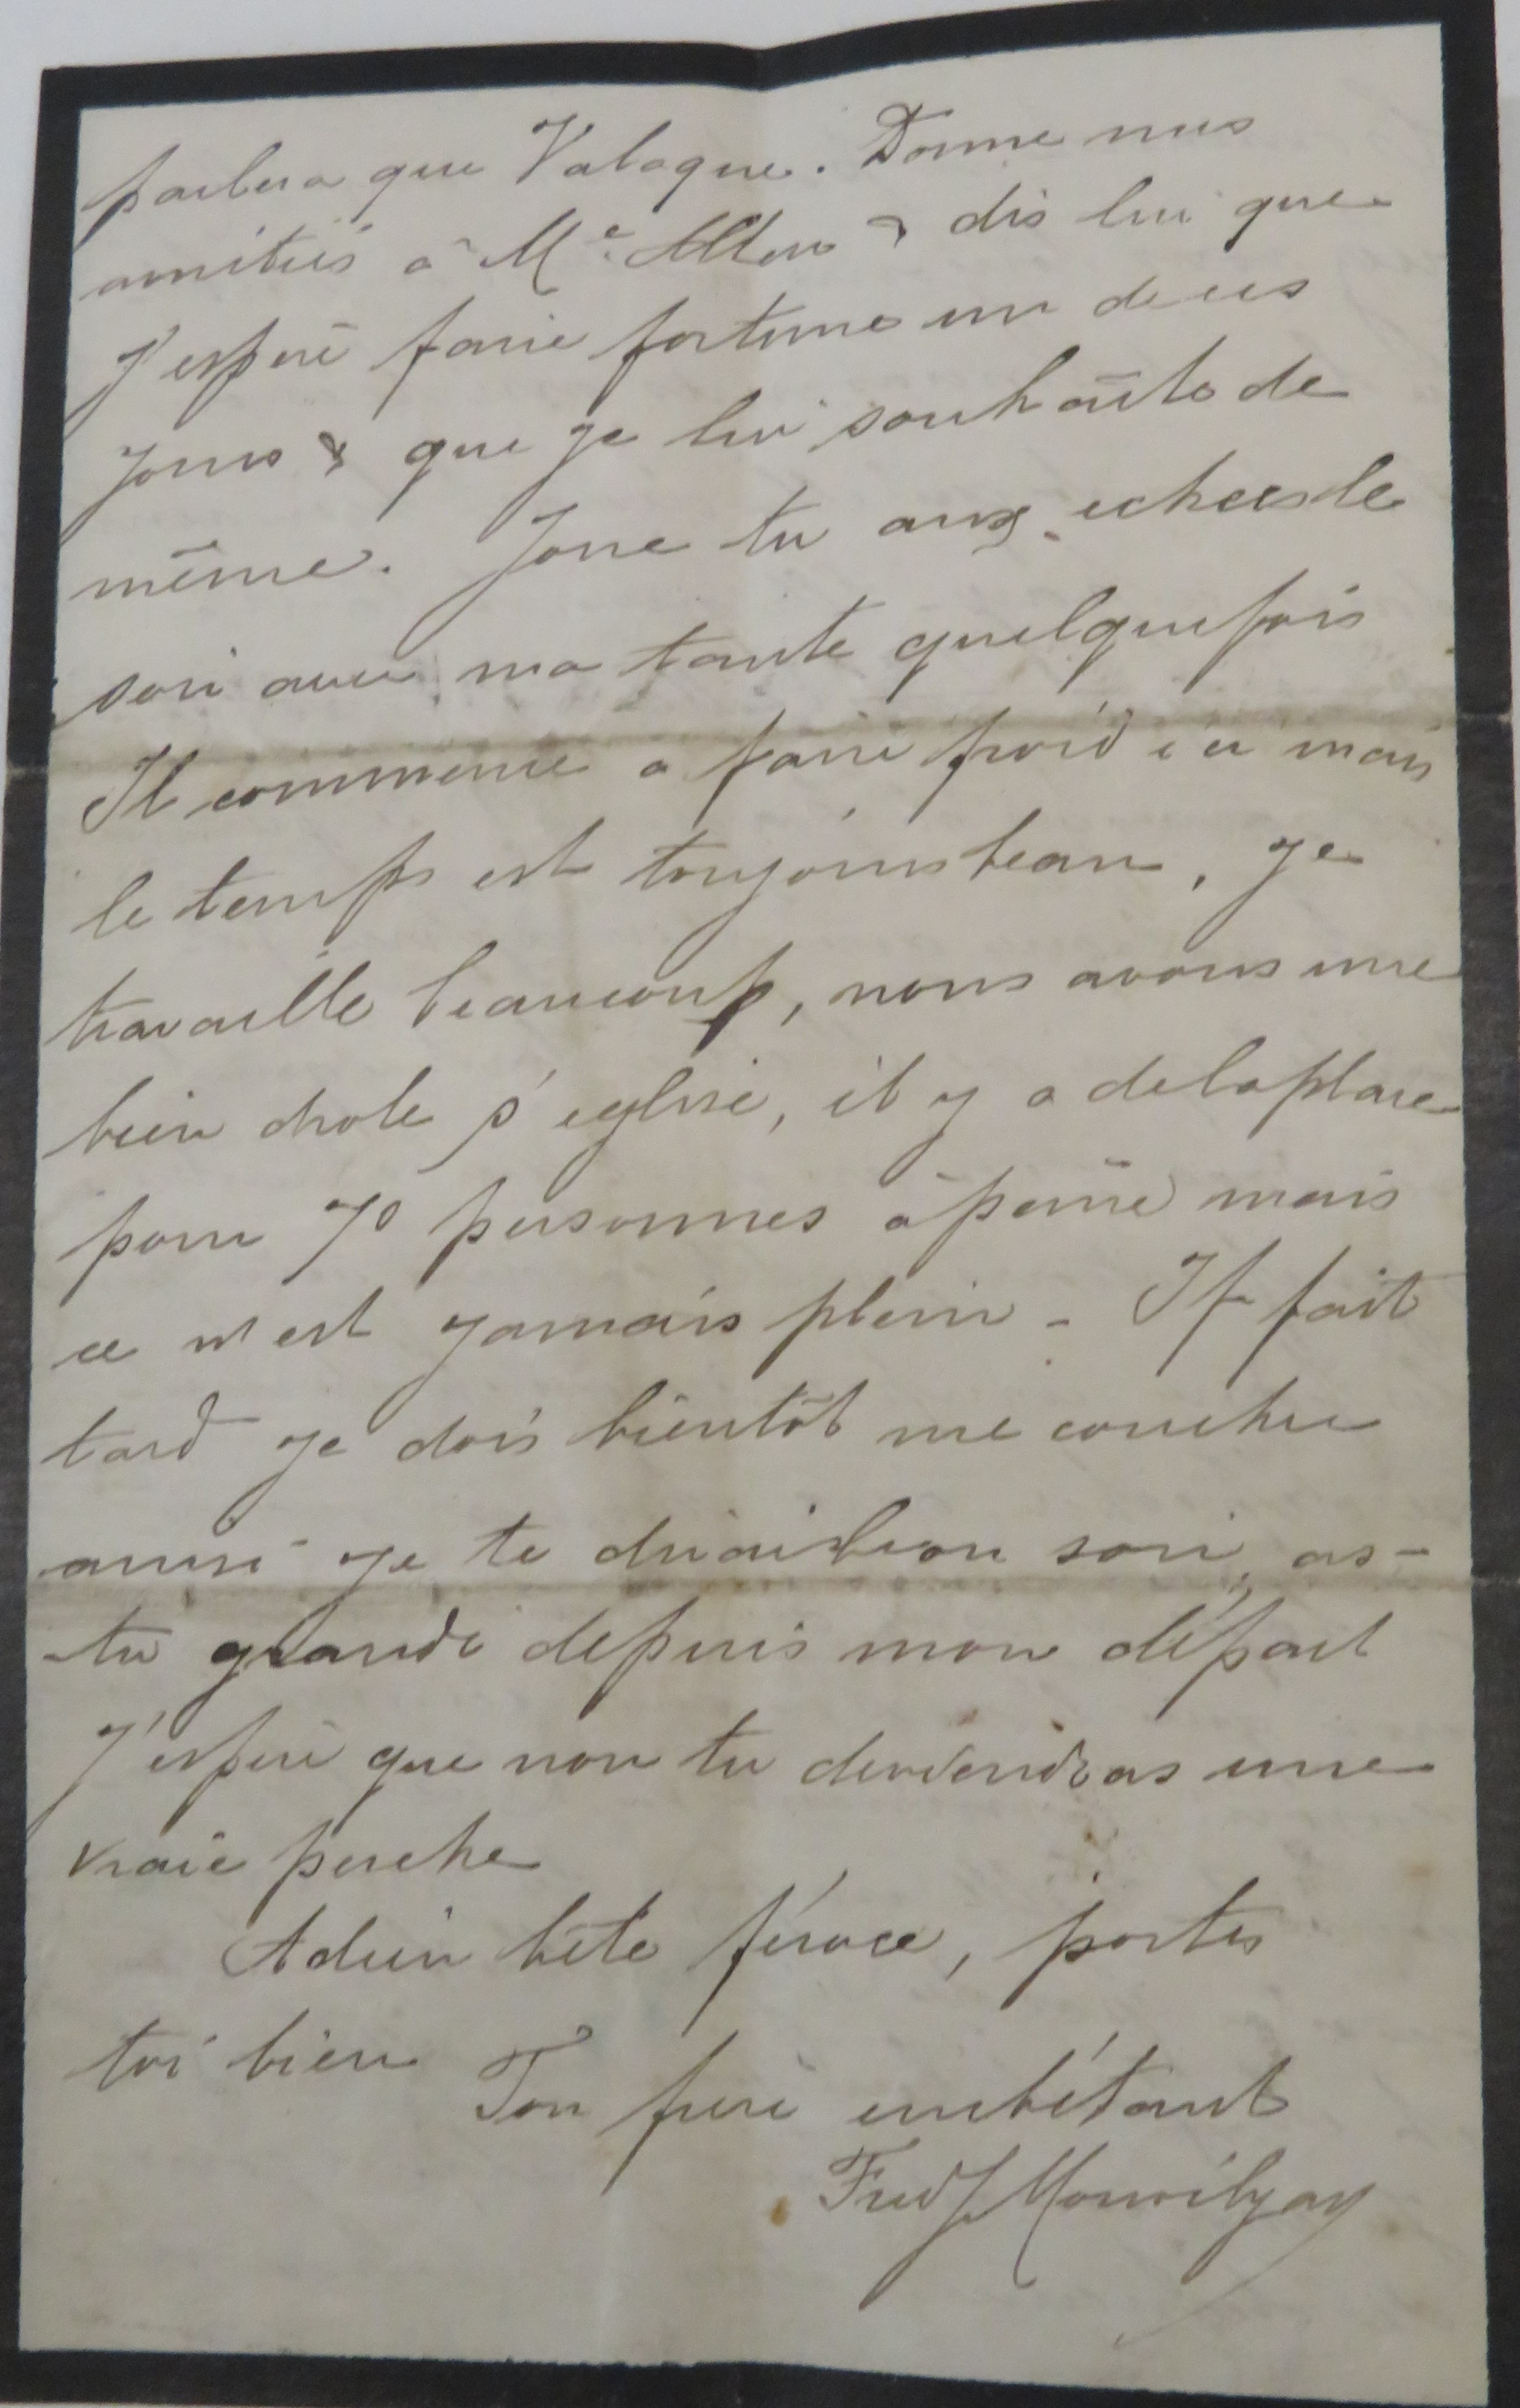 parlera que Valaque. Donne mes
amitiés à Me. Allen & dis lui que
J'espère faire fortune un de ces
jours & que je lui souhaite de
même. Joue tu aux echecs le
soir avec ma tante quelquefois
Il commence a faire froid ici mais
le temps est toujours beau, je
travaille beaucoup, nous avons une
bien drole d'eglise, il y a de la place
pour 70 personnes à peine mais
ce n'est jamais plein - Il fait
tard je dois bientôt me coucher
aussi je te dirai bon soir, as-
-tu grandi depuis mon départ
J'espère que non tu deviendras une
vraie perche
Adieu bête féroce, portes
toi bien
Ton frère embêtant
Fred